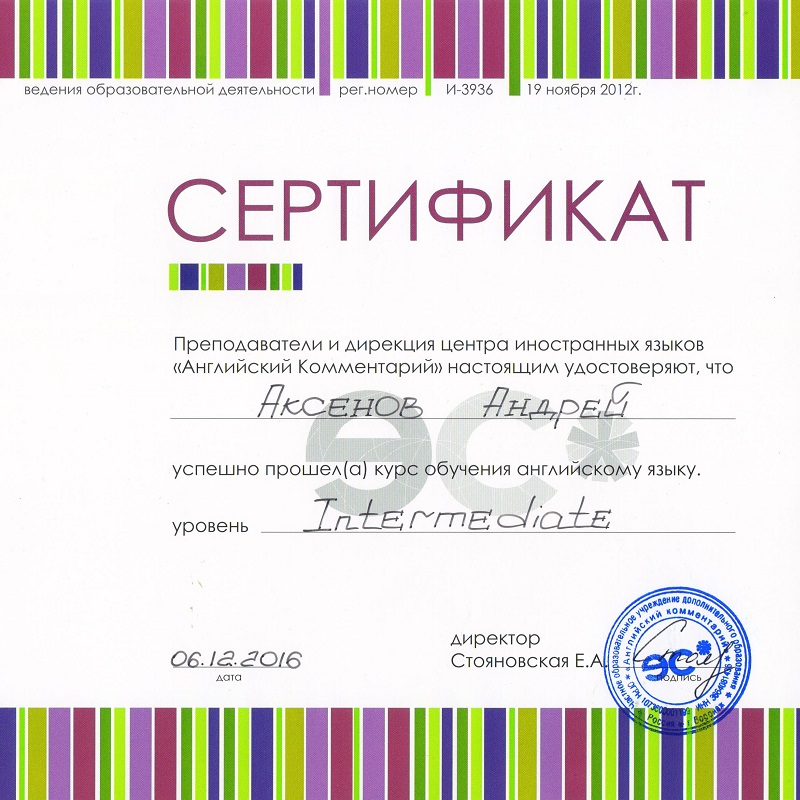 ведения образовательной деятельности рег.номер И-3936 19 ноября 2012г.
СЕРТИФИКАТ
Преподаватели и дирекция центра иностранных языков
«Английский Комментарий» настоящим удостоверяют, что
Аксенов Андрей
эс*
успешно прошел(а) курс обучения английскому языку.
уровень Intermediate
директор
06.12.2016 Стояновская Е.А.
дата подпись
Частное образовательное учреждение дополнительного образования
«Английский комментарий»
эс*
Россия г. Воронеж